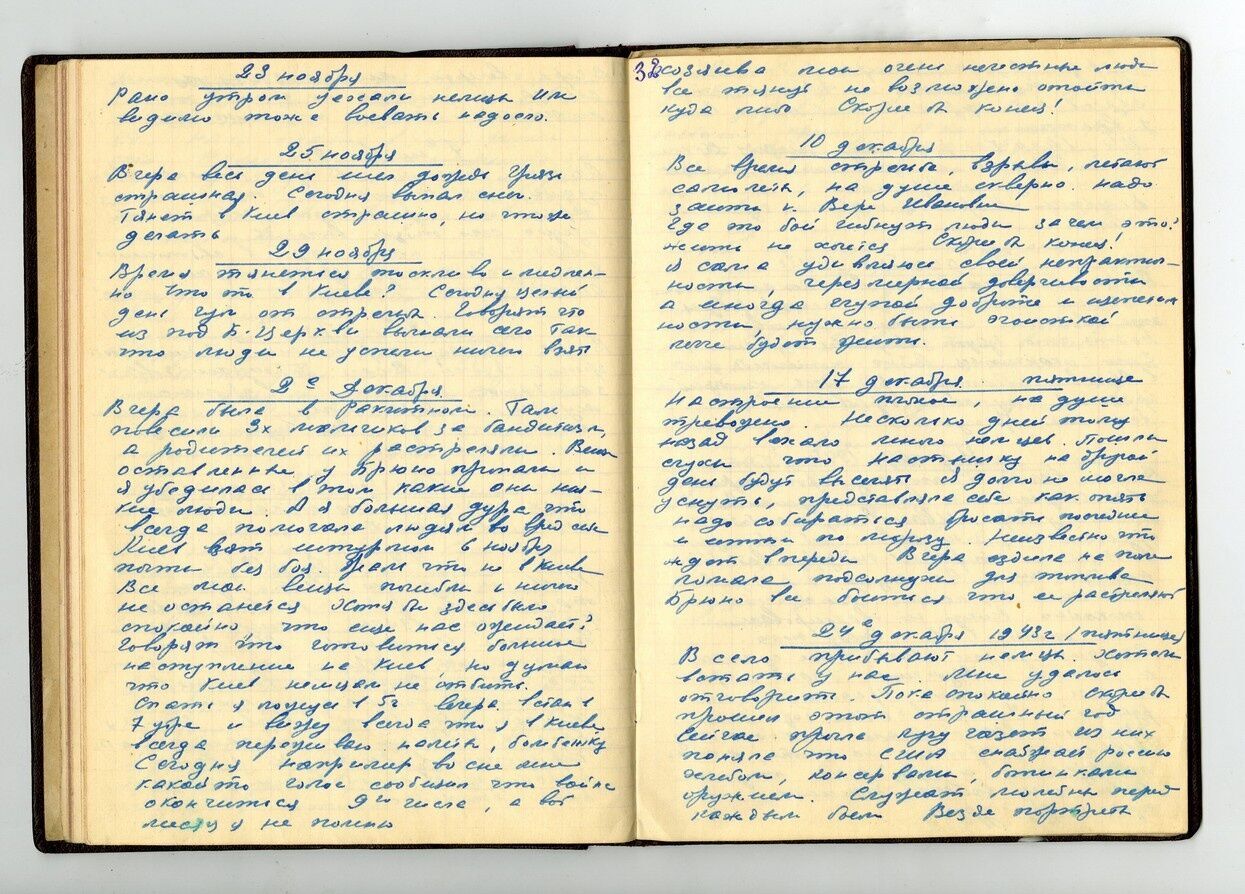 23 ноября
Рано утром уехали немцы им
видимо тоже воевать надоело.
25 ноября
Вчера весь день шел дождь грязь
страшная. Сегодня выпал снег.
Тянет в Киев страшно, но что же
делать
29 ноября
Время тянется тоскливо и медлен-
но Что то в Киеве? Сегодня целый
день гул от стрельб. Говорят что
из под Б-Церкви выгнали село так
что люди не успели ничего взять
2е Декабря
Вчера была в Ракитном. Там
повесили 3х мальчиков за бандитизм,
а родителей их расстреляли. Вещи
оставленные у Брюно пропали и
я убедилась в том какие они низ-
кие люди. А я большая дура что
всегда помогала людям во вред себе
Киев взят штурмом 6 ноября
почти без боя. Жаль что не в Киеве
Все мои вещи погибли и ничего
не останется Хотя бы здесь было
спокойно что еще нас ожидает?
Говорят что готовится большое
наступление на Киев, но думаю
что Киев немцам не отбить.
Спать я ложусь в 5ч вечера встаю в
7 утра и вижу всегда что я в Киеве
всегда переживаю налеты, бомбежку
Сегодня например во сне мне
какой то голос сообщил что война
окончится 9го числа, а вот
месяц я не помню
32
хозяева мои очень нечестные люди
все тянут не возможно отойти
куда либо Скорее б конец!
10 декабря
Все время стрельба, взрывы, летают
самолеты, на душе скверно. надо
зайти к Вере Ивановне
Где то бой гибнут люди зачем это?
жить не хочется Скорее б конец!
Я сама удивляюсь своей непрактич-
ности, черезмерной доверчивости
а иногда глупой доброте и щепетиль
ности, нужно быть эгоисткой
легче будет жить.
17 декабря пятница
Настроение плохое, на душе
тревожно. Несколько дней тому
назад въехало много немцев. Пошли
слухи что Настяшку на другой
день будут выселять Я долго не могла
уснуть, представляла себе как опять
надо собираться бросать последнее
и идти по морозу. Неизвестно что
ждет впереди Вчера ездила на поле
ломала подсолнухи для топлива
Брюно все боится что ее расстреляют
24е декабря 1943 г /пятница/
В село прибывают немцы. Хотели
встать у нас. Мне удалось
отговорить. Пока спокойно скорее б
прошел этот страшный год
Сейчас прочла груду газет из них
поняла что США снабжает россию
хлебом, консервами, ботинками
оружием. Служат молебны перед
каждым боем Везде портреты